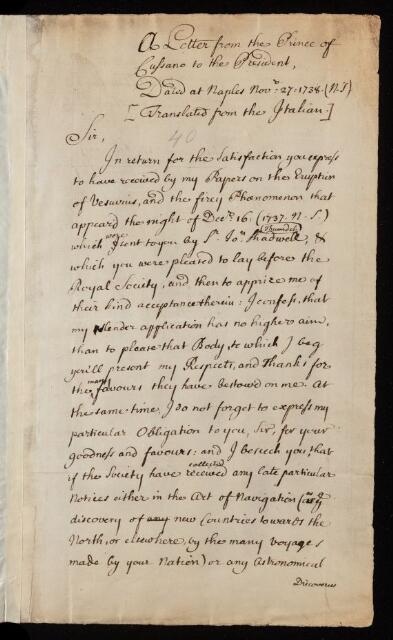 A Letter from the Prince of
Cussano to the President,
Dated at Naples Novr. 27. 1738. (N.S)
[Translated from the Italian.]
Sir,
40
In return for the Satisfaction you express
to have received by my Papers on the Eruption
of Vesuvius, and the firey Phænomenon that
appeard the night of Decr. 16. (1737. N. S.)
which were sent to you by Sr. Jon. Shadwell, &
which you were pleased to lay before the
Royal Society, and then to apprize me of
their kind acceptance therein: I confess, that
my slender application has no higher aim,
than to please that Body, to which I beg
you'll present my Respects, and Thanks for
the many favours they have bestowd on me. At
the same time, I do not forget to express my
particular Obligation to you, Sir, for your
goodness and favours: and I beseech you, that
if the Society have collected any late particular
Notices either in the Art of Navigation (as ye
discovery of new Countries towards the
North, or elsewhere, by the many voyages
made by your Nation) or any Astronomical
Discoveries